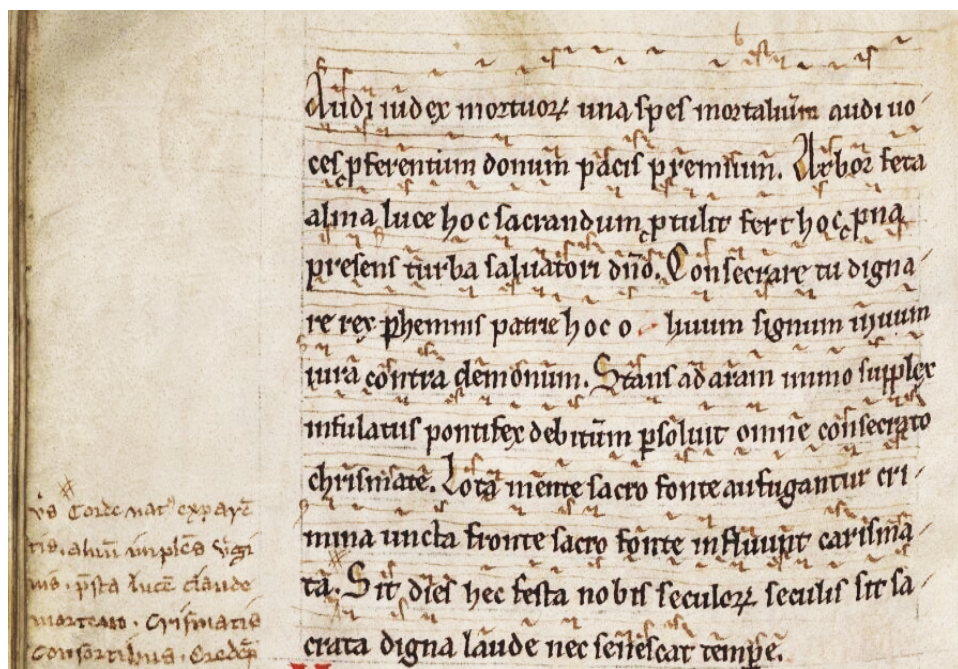 Audi iudex mortuoꝝ una spes mortalium audi uo-
ces ꝓferentium donum pacis premium. Arbor feta
alma luce hoc sacrandum ꝓtulit fert hoc ꝓna
presens turba saluatori dño. Consecrare tu digna-
re rex ꝑhennis patrie hoc o liuum signum uiuum
iura contra demonum. Stans ad aram immo supplex
infulatus pontifex debitum ꝑsoluit omne consecrato
chrismate. Lota mente sacro fonte aufugantur cri-
mina uncta fronte sacro fonte influunt carisma-
ta. Sit dies hec festa nobis seculoꝝ seculis sit sa-
crata digna laude nec senescat tempe.
Corde natꝰ ex parē
tis. aluū implēs ũgi
nis. p̄sta lucē claude
mortem. Crismatis
consortibus.